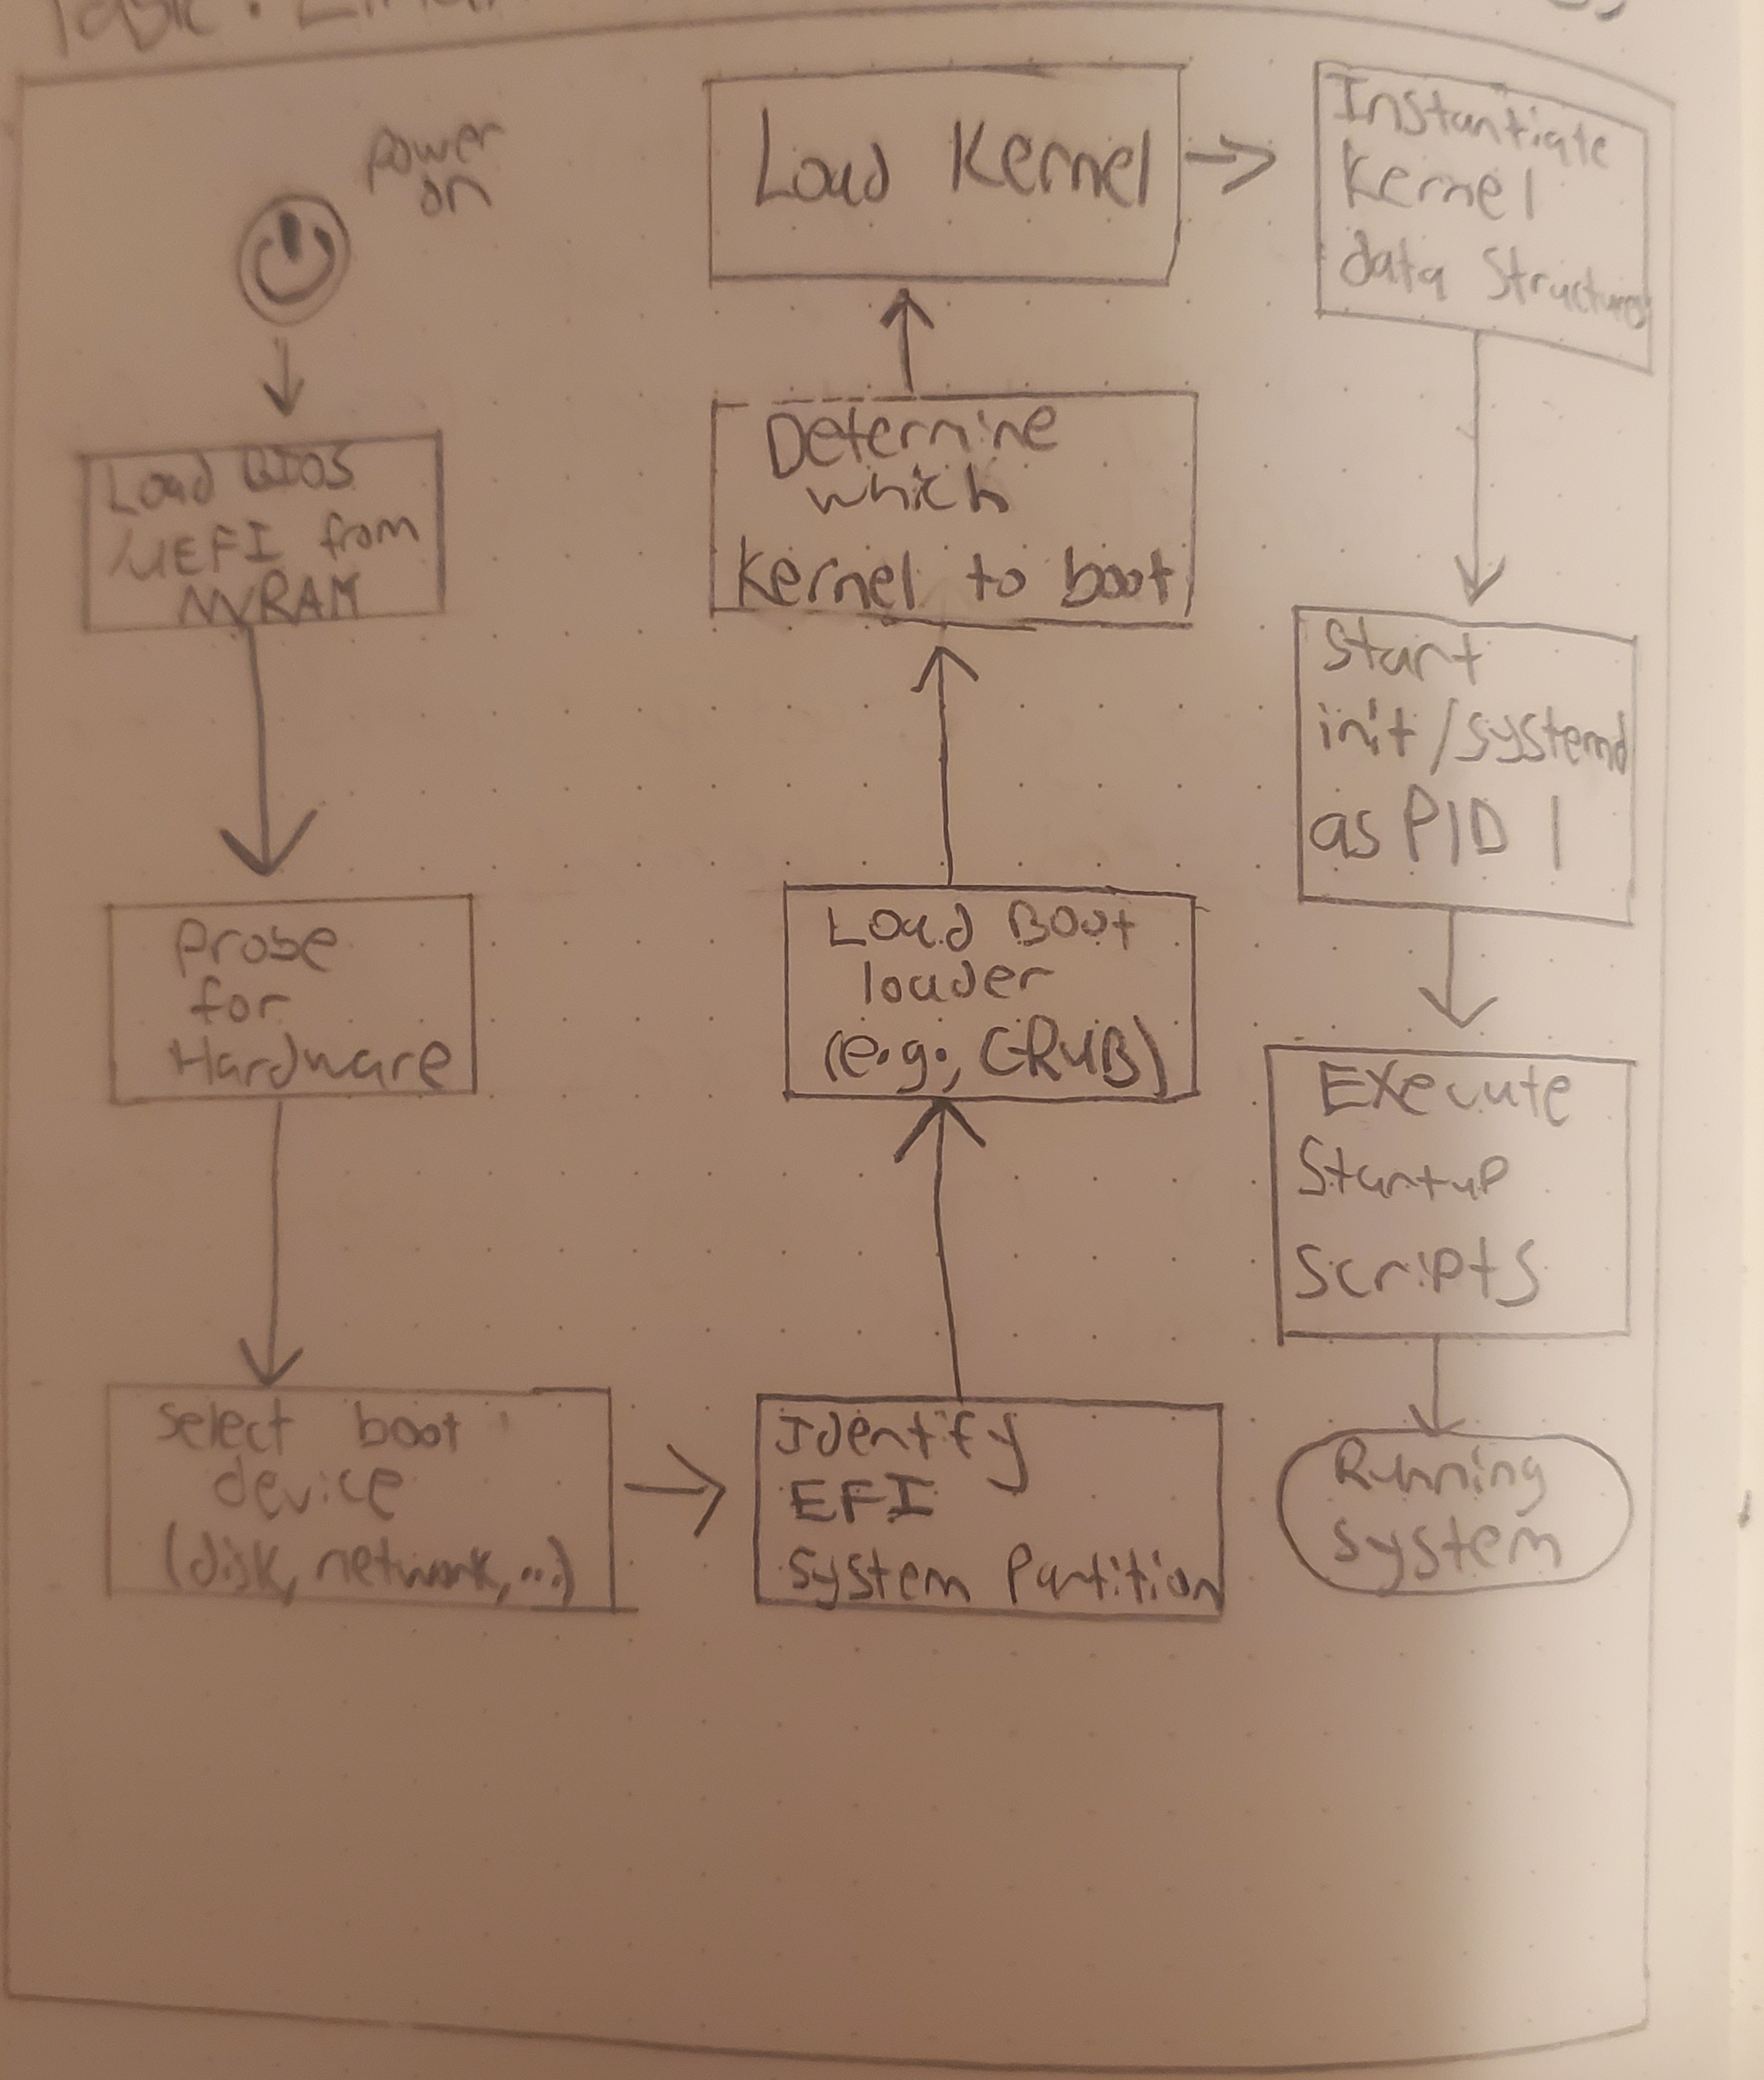 power
on
Load BIOS
UEFI from
NVRAM
Probe
for
Hardware
Select boot
device
(disk, network, ...)
Identify
EFI
System Partition
Load Boot
loader
(e.g., GRUB)
Determine
which
Kernel to boot
Load Kernel
Instantiate
Kernel
data Structures
Start
init/systemd
as PID 1
Execute
Startup
Scripts
Running
System